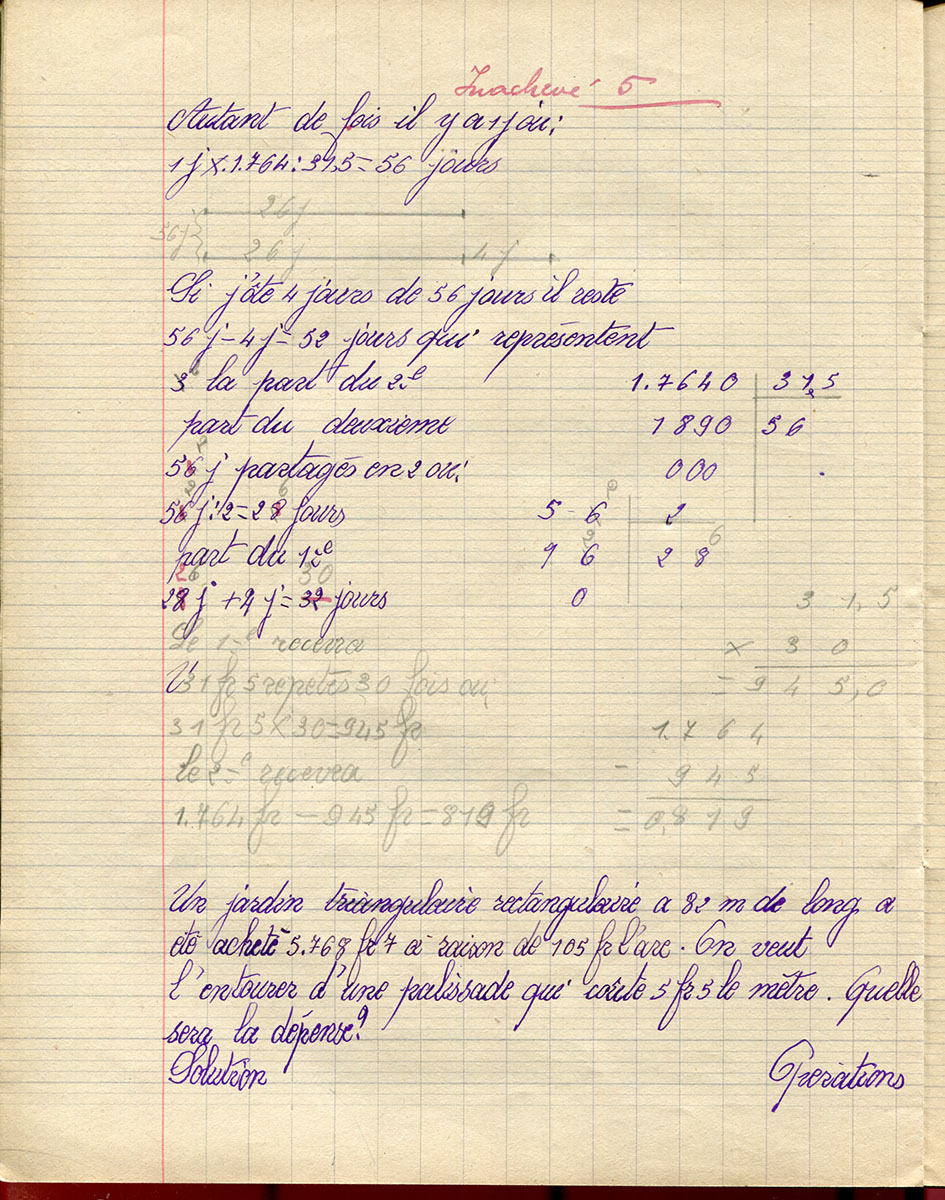 Inachevé 5
Autant de fois il y a 1 j ou :
1 j x 1.764 : 31,5 = 56 jours
26 j
56 j
26 j 4 j
Si j'ôte 4 jours de 56 jours il reste
56 j - 4 j = 52 jours qui représentent
la part du 2e
part du deuxieme
56 j partagés en 2 ou :
56 j : 2 = 28 jours
part du 1e
28 j + 4 j = 32 jours
30
Le 1e recevra
31 fr 5 repetés 30 fois ou :
31 fr 5 x 30 = 945 fr
le 2e recevra
1.764 fr - 945 fr = 819 fr
1.7640 31,5
1890 56
000
5 6 2
1 6 2 8
0
3 1,5
x 3 0
= 9 4 5,0
1.7 6 4
- 9 4 5
= 0,8 1 9
Un jardin triangulaire rectangulaire a 82 m de long a
été acheté 5.768 fr 7 à raison de 105 fr l'are. On veut
l'entourer d'une palissade qui coûte 5 fr 5 le mètre. Quelle
sera la dépense ?
Solution Opérations